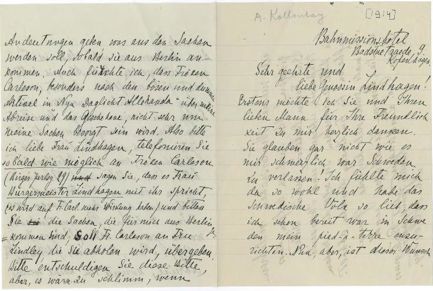 A. Kollontay
[1914]
Bahnmissionshotel
Kopenhagen
Sehr geehrte und
liebe Lindhagen!
Erstens möchte ich Sie und Ihren
lieben Mann für Ihre Freundlich
keit zu mir herzlich danken.
Sie glauben gar nicht wie es
mir schmerzlich war Schweden
zu verlassen! Ich fühlte mich
da so wohl und habe das
Schwedische Volk so lieb, dass
ich schon bereit war in Schwe
den mein pied-à-terre ein-
richten. Nun, aber, ist dieser Wunsch
Andeutungen geben was aus den Sachen
werden soll, sobald sie aus Berlin an-
kommen, doch fürchte ich, dass Fröken
Carlsson, besonders nach den bösen und
Artikel in Nya Dagligt Allehanda über meine
Abreise und das nicht sehr um
meine Sachen besorgt sein wird. Also bitte
ich liebe Frau Lindhagen, telefonieren Sie
so bald wie möglich an Fröken Carlsson
sagen Sie, dass es Frau
Bürgermeister Lindhagen mit ihr spricht,
es wird auf Frl. mehr Wirkung haben und bitten
Sie die Sachen, die für mich aus Berlin
kommen sind, soll Fr. Carlsson an Frau
Lindley die sie abholen wird, übergeben.
Bitte entschuldigen Sie diese Bitte,
aber, es wäre zu schlimm, wenn